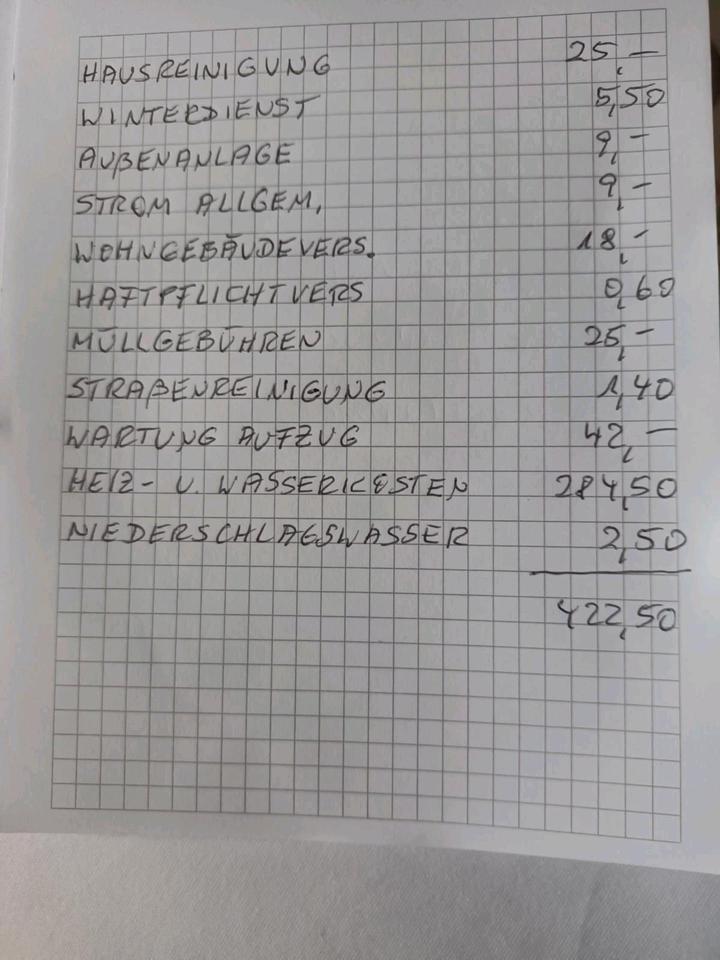 HAUSREINIGUNG 25,—
WINTERDIENST 5,50
AUßENANLAGE 9,—
STROM ALLGEM. 9,—
WOHNGEBÄUDEVERS. 18,—
HAFTPFLICHTVERS 0,60
MÜLLGEBÜHREN 25,—
STRAßENREINIGUNG 1,40
WARTUNG AUFZUG 42,—
HEIZ- U. WASSERKOSTEN 284,50
NIEDERSCHLAGSWASSER 2,50
422,50